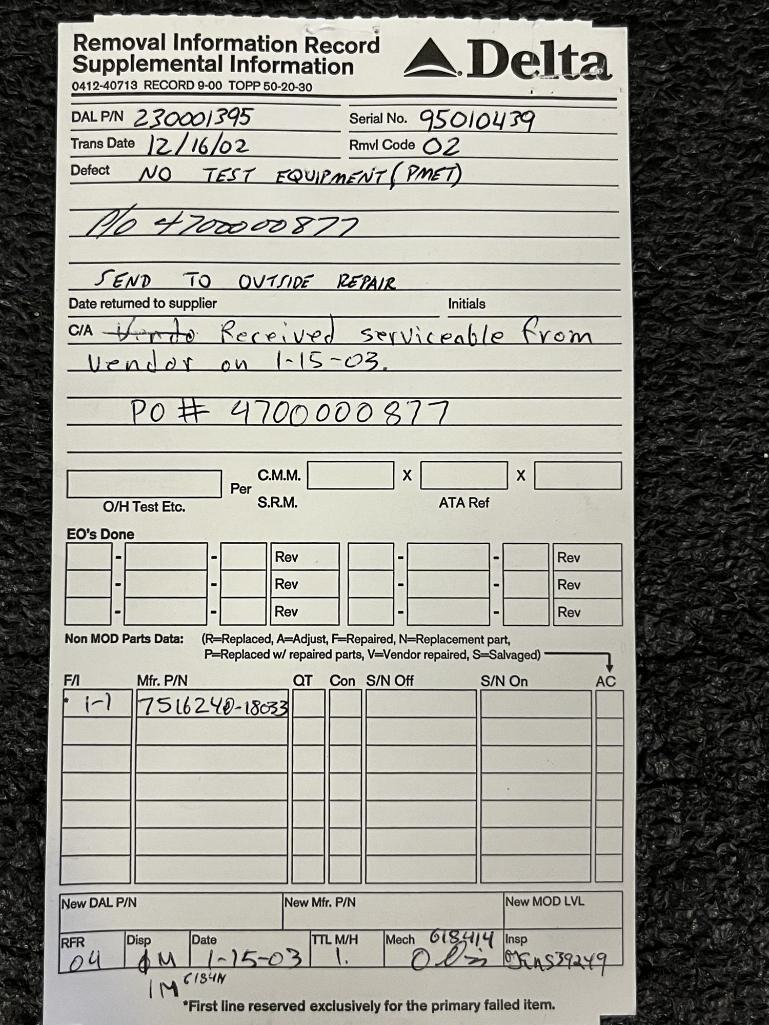 Removal Information Record
Supplemental Information
0412-40713 RECORD 9-00 TOPP 50-20-30
Delta
DAL P/N 230001395 Serial No. 95010439
Trans Date 12/16/02 Rmvl Code 02
Defect NO TEST EQUIPMENT (PMET)
P/O 4700000877
SEND TO OUTSIDE REPAIR
Date returned to supplier Initials
C/A Received serviceable from
vendor on 1-15-03.
PO # 4700000877
O/H Test Etc. Per C.M.M. X X
S.R.M. ATA Ref
EO's Done
- - Rev - - Rev
- - Rev - - Rev
- - Rev - - Rev
Non MOD Parts Data: (R=Replaced, A=Adjust, F=Repaired, N=Replacement part,
P=Replaced w/ repaired parts, V=Vendor repaired, S=Salvaged)
F/I Mfr. P/N QT Con S/N Off S/N On AC
* 1-1 7516240-18033
New DAL P/N New Mfr. P/N New MOD LVL
RFR Disp Date TTL M/H Mech 618414 Insp
04 1-15-03 1.
1M
*First line reserved exclusively for the primary failed item.